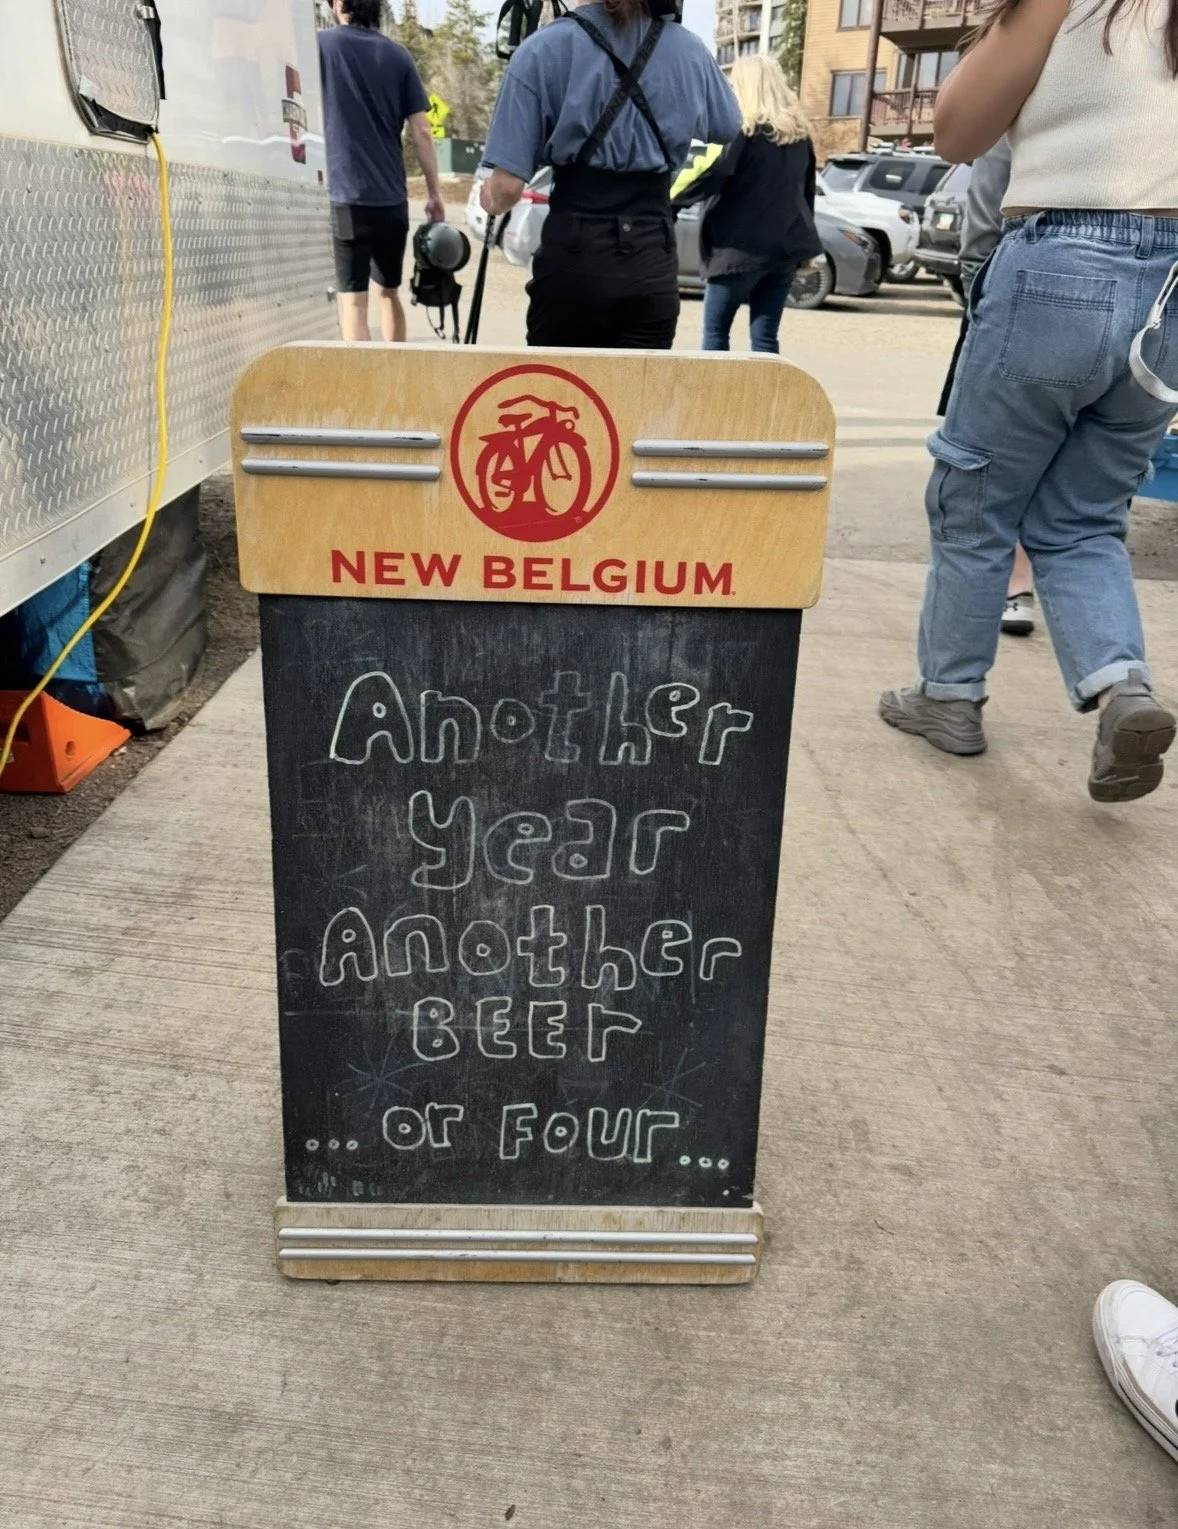 NEW BELGIUM
Another
year
Another
BEEr
... or Four...